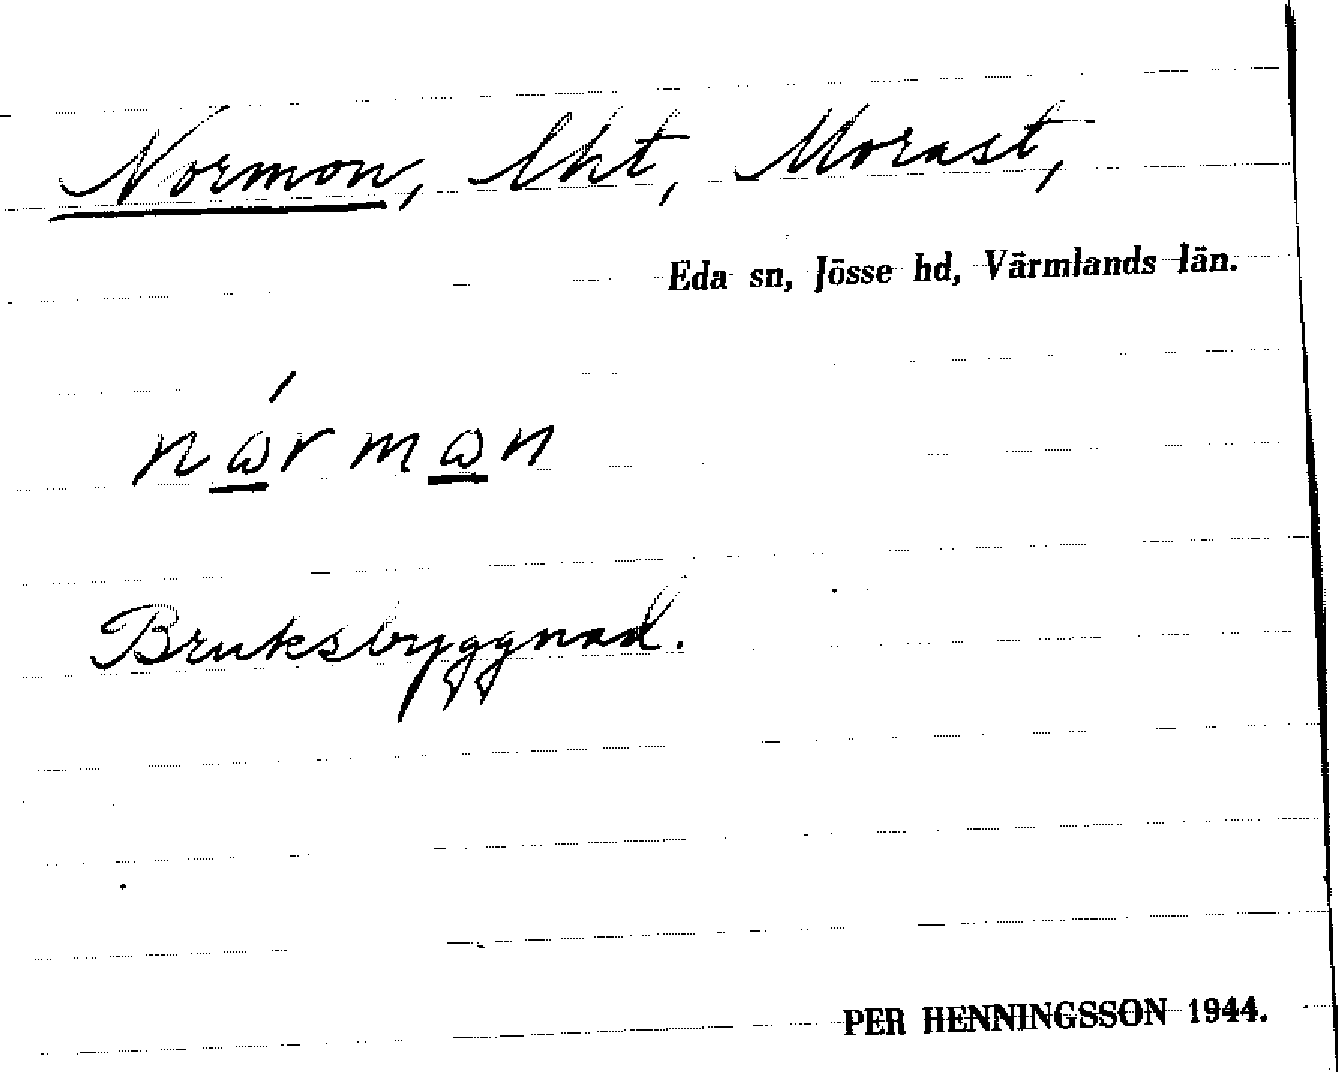 Normon, lht, Morast,
Eda sn, Jösse hd, Värmlands län.
nórmon
Bruksbyggnad.
PER HENNINGSSON 1944.